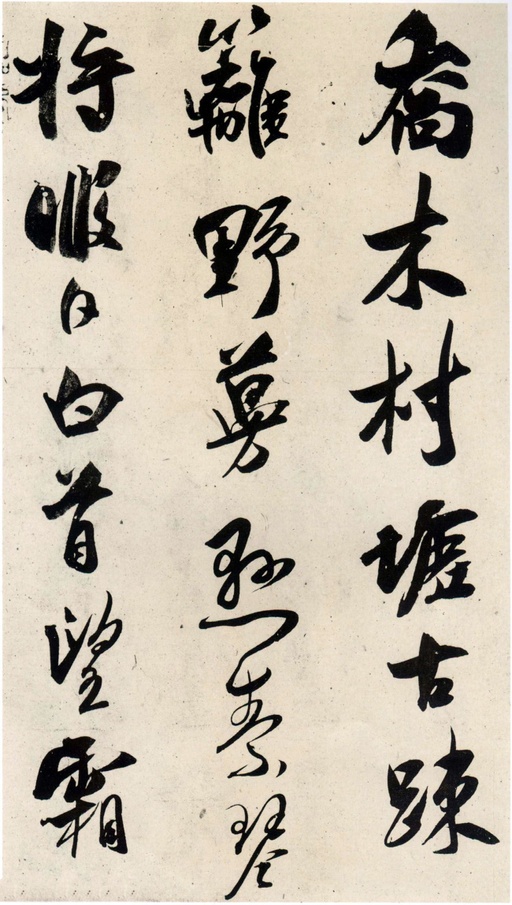 喬木村墟古踈
籬野蔓懸素琴
將暇日白首望霜